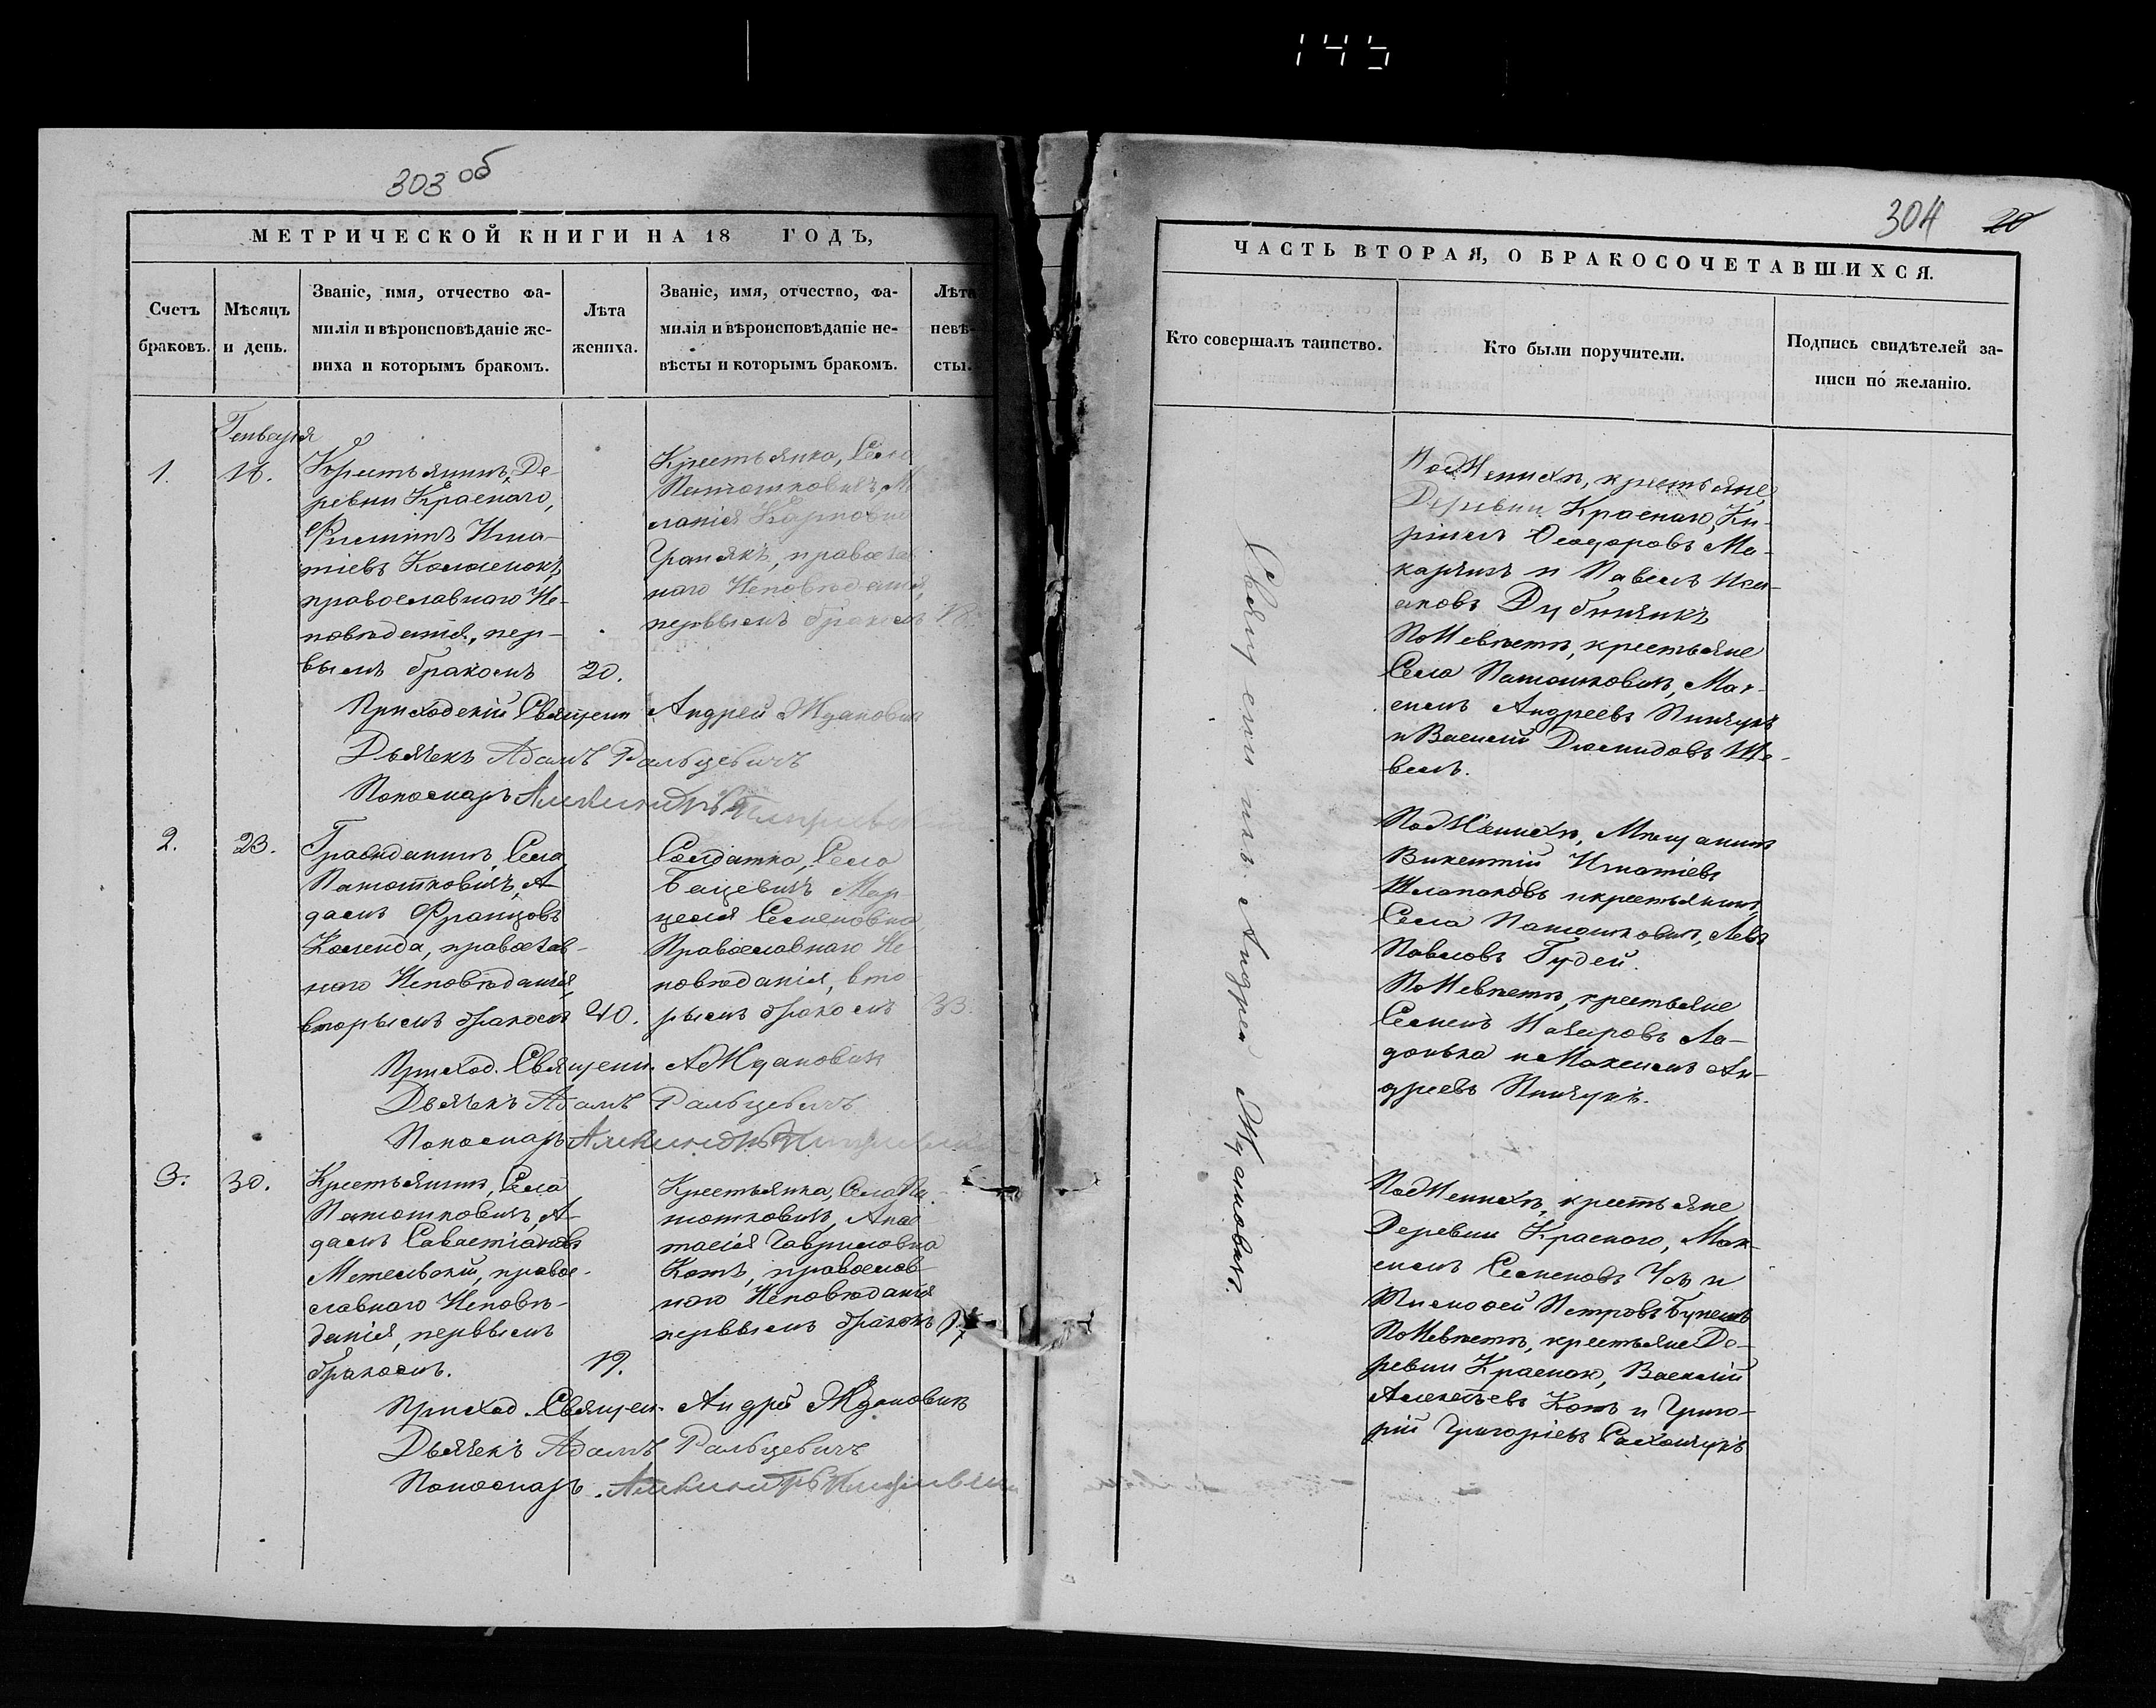 145
303 об
МЕТРИЧЕСКОЙ КНИГИ НА 18 ГОДЪ,
Счетъ браковъ.
Мѣсяцъ и день.
Званіе, имя, отчество фа-
милія и вѣроисповѣданіе же-
ниха и которымъ бракомъ.
Лѣта жениха.
Званіе, имя, отчество, фа-
милія и вѣроисповѣданіе не-
вѣсты и которымъ бракомъ.
Лѣта невѣ-
сты.
Генваря
1.
16.
Крестьянинъ, Де-
ревни Краснаго,
Игна-
тіевъ
православнаго Ис-
повѣданія, пер-
вымъ бракомъ
20.
Крестьянка, Села
Паташковичъ, М
ланія Карповна
православ
наго Исповѣданія,
первымъ бракомъ
18.
Приходскій Священ Андрей Ждановичъ
Дьячекъ Адамъ Ральцевичъ
Пономарь
2.
23.
Гражданинъ, Села
Паташковичъ, А-
дамъ Францовъ
Коленда, православ-
наго Исповѣданія,
вторымъ бракомъ
40.
Солдатка, Села
Бацевичъ Мар
целя Семеновна
Православнаго Ис
повѣданія, вто
рымъ бракомъ
33.
Приход. Священ. А Ждановичъ
Дьячекъ Адамъ Ральцевичъ
Пономарь
3.
30.
Крестьянинъ, Села
Паташковичъ, А-
дамъ Савастіановъ
Метельскій, право-
славнаго Исповѣ-
данія, первымъ
бракомъ.
19.
Крестьянка, Села Па-
ташковичъ, Анас
тасія Гаврилова
Котъ, православ-
наго Исповѣданія
первымъ бракомъ
Приход. Священ. Андрей Ждановичъ
Дьячекъ Адамъ Ральцевичъ
Пономарь
304
20
ЧАСТЬ ВТОРАЯ, О БРАКОСОЧЕТАВШИХСЯ.
Кто совершалъ таинство.
Кто были поручители.
Подпись свидѣтелей за-
писи по желанію.
Священникъ Андрей Ждановичъ.
По Женихѣ, крестьяне,
Деревни Краснаго, Ки-
рилъ Ѳеодоровъ Ма-
и Павелъ
Дубнякъ
По Невѣстѣ, крестьяне
Села Паташковичъ, Мак-
симъ Андреевъ Пинчукъ
и Василій
По Женихѣ, Мѣщанинъ
Викентій Игнатіевъ
и крестьянинъ,
Села Паташковичъ, Левъ
Павловъ Гудей.
По Невѣстѣ, крестьяне
Семенъ Назаровъ Ла-
и Максимъ Ан-
дреевъ Пинчукъ.
По Женихѣ, крестьяне
Деревни Краснаго, Мак-
симъ Семеновъ и
Тимофей Петровъ
По Невѣстѣ, крестьяне Де-
ревни Василій
Алексѣевъ Котъ и Григо-
рій Григоріевъ